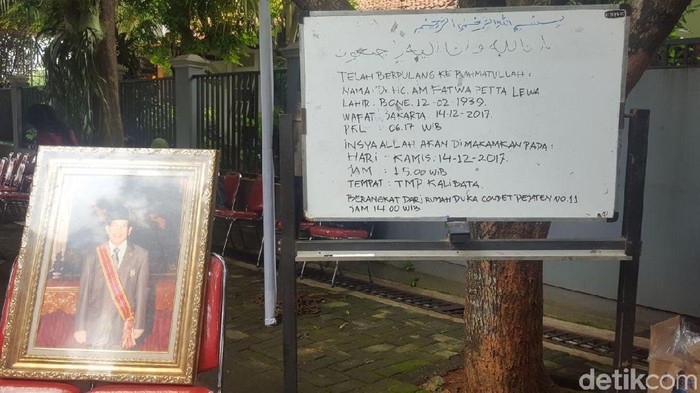 بسم الله الرحمن الرحيم
إنا لله وإنا إليه راجعون
TELAH BERPULANG KE RUHMATULLAH:
NAMA: Dr. HC. AM FATWA PETTA LEWA
LAHIR: BONE. 12-02 1939.
WAFAT: JAKARTA 14-12-2017.
PKL : 06.17 WIB
INSYA ALLAH AKAN DI MAKAMKAN PADA:
HARI : KAMIS. 14-12-2017.
JAM : 15.00 WIB
TEMPAT : TMP KALIBATA.
BERANGKAT DARI RUMAH DUKA CONDET PEJATEN NO.11
JAM 14.00 WIB
detikcom